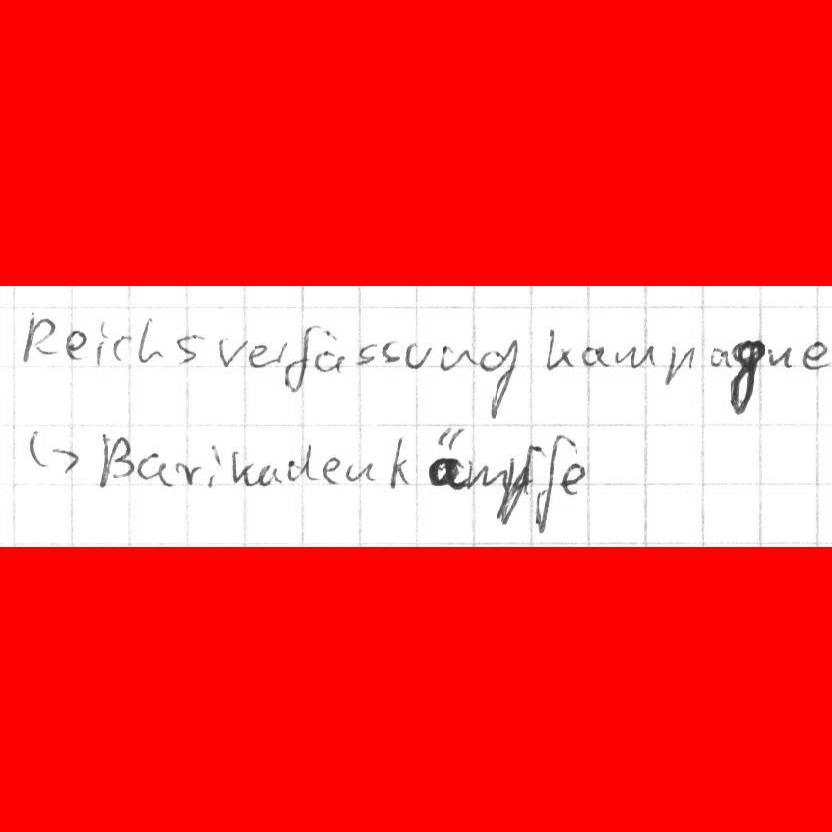 Reichsverfassung kampagne
↳ Barikadenkämpfe